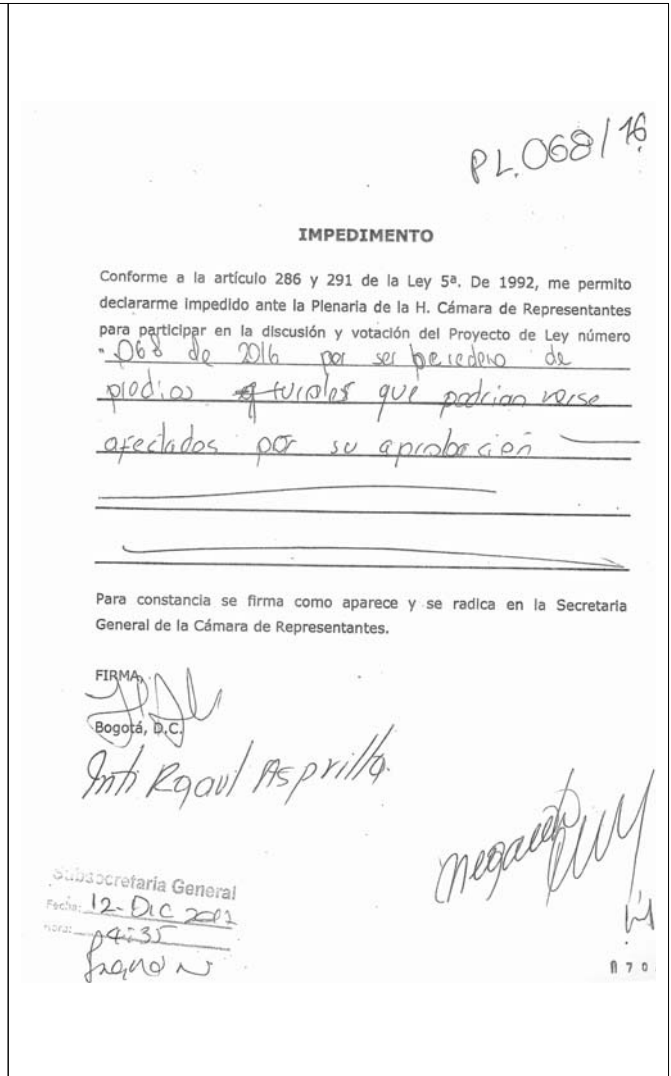 PL.068/16
IMPEDIMENTO
Conforme a la artículo 286 y 291 de la Ley 5ª. De 1992, me permito
declararme impedido ante la Plenaria de la H. Cámara de Representantes
para participar en la discusión y votación del Proyecto de Ley número
068 de 2016 por ser heredero de
predios rurales que podrian verse
afectados por su aprobación
Para constancia se firma como aparece y se radica en la Secretaria
General de la Cámara de Representantes.
FIRMA,
Bogotá, D.C.
Inti Raaul Asprilla
Negado
Subsecretaria General
Fecha: 12-Dic
Hora: 04:35